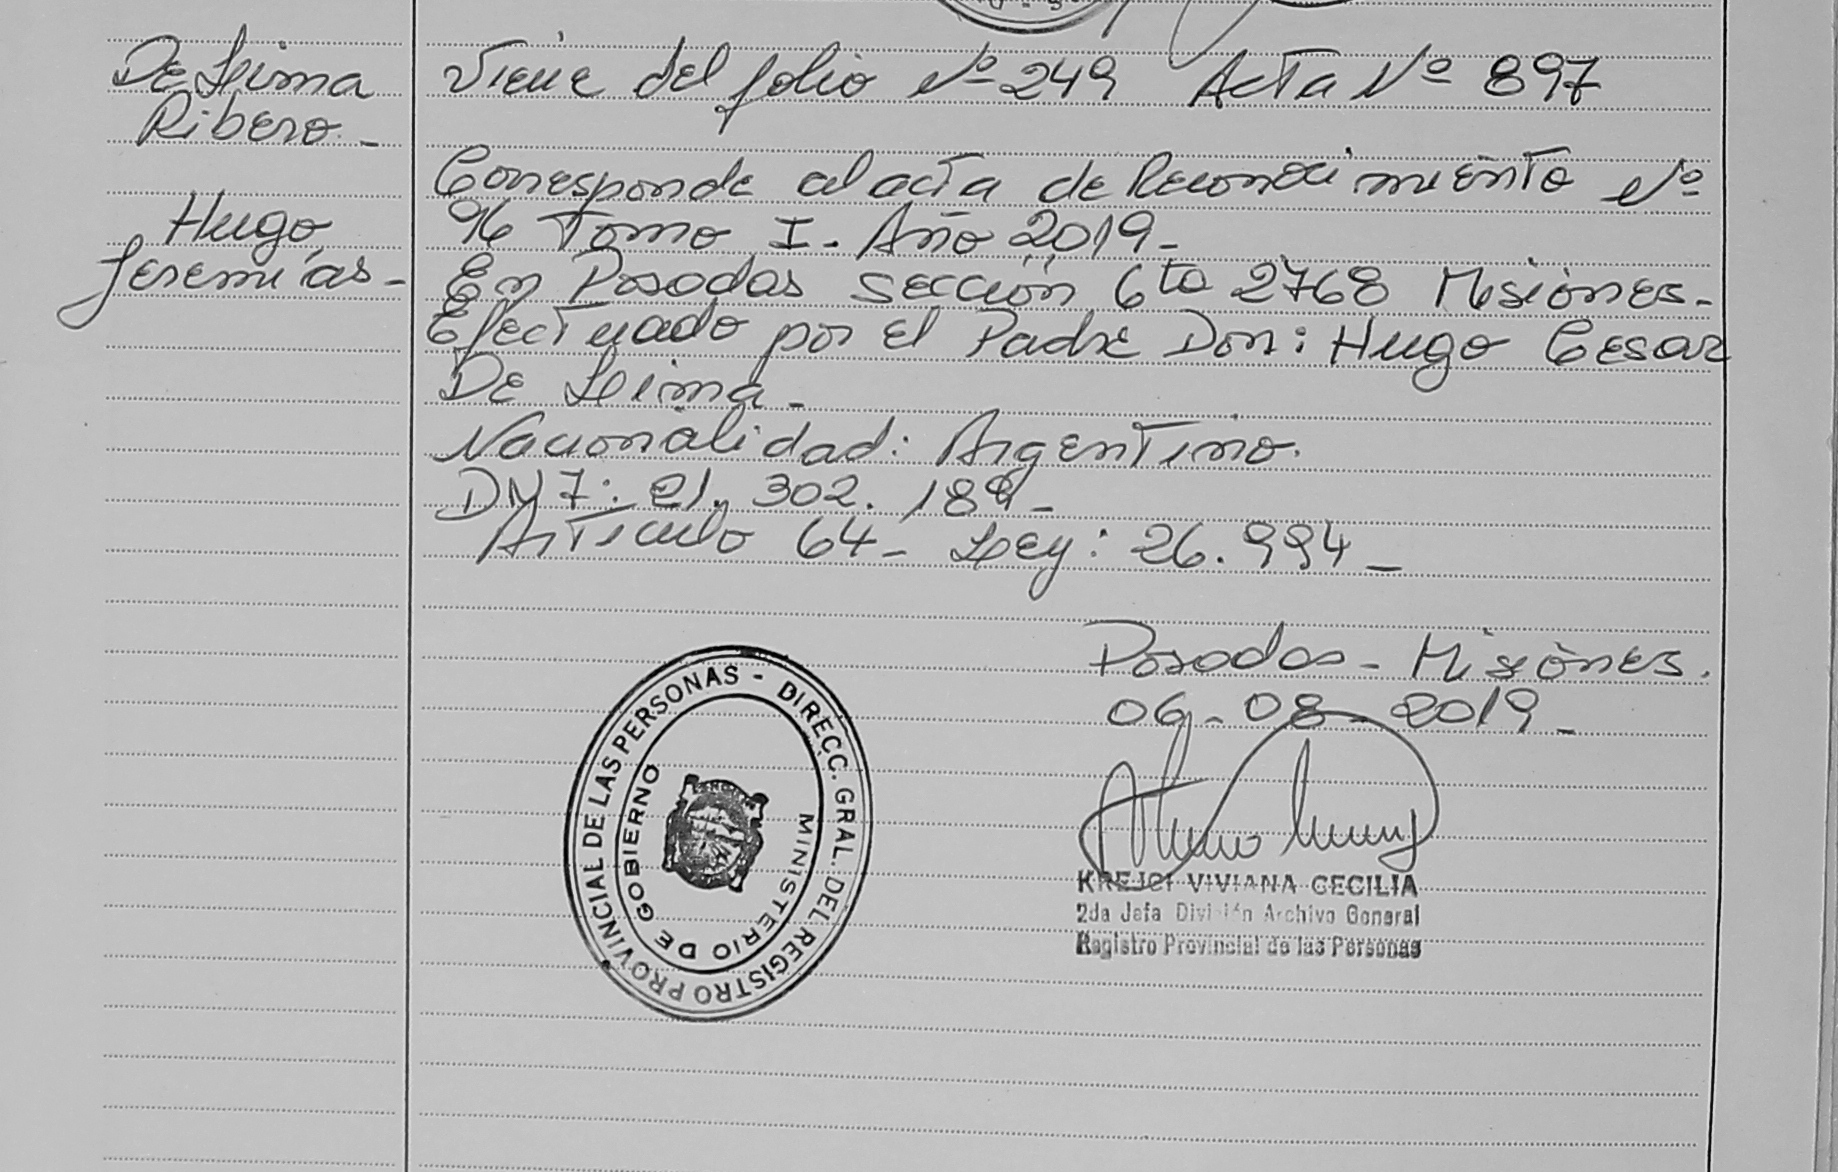 De Lima
Ribero.-
Hugo,
Jeremías-
Viene del folio Nº 249 Acta Nº 897
Corresponde al acta de Reconocimiento Nº
96 Tomo I. Año 2019-
En Posadas sección 6ta 2768 Misiones-
Efectuado por el Padre Don: Hugo Cesar
De Lima-
Nacionalidad: Argentino.
DNI: 21.302.188-
Articulo 64- Ley: 26.994-
Posadas- Misiones.
06-08-2019-
REGISTRO PROVINCIAL DE LAS PERSONAS - DIRECC. GRAL. DEL
MINISTERIO DE GOBIERNO
KREJCI VIVIANA CECILIA
2da Jefa División Archivo General
Registro Provincial de las Personas